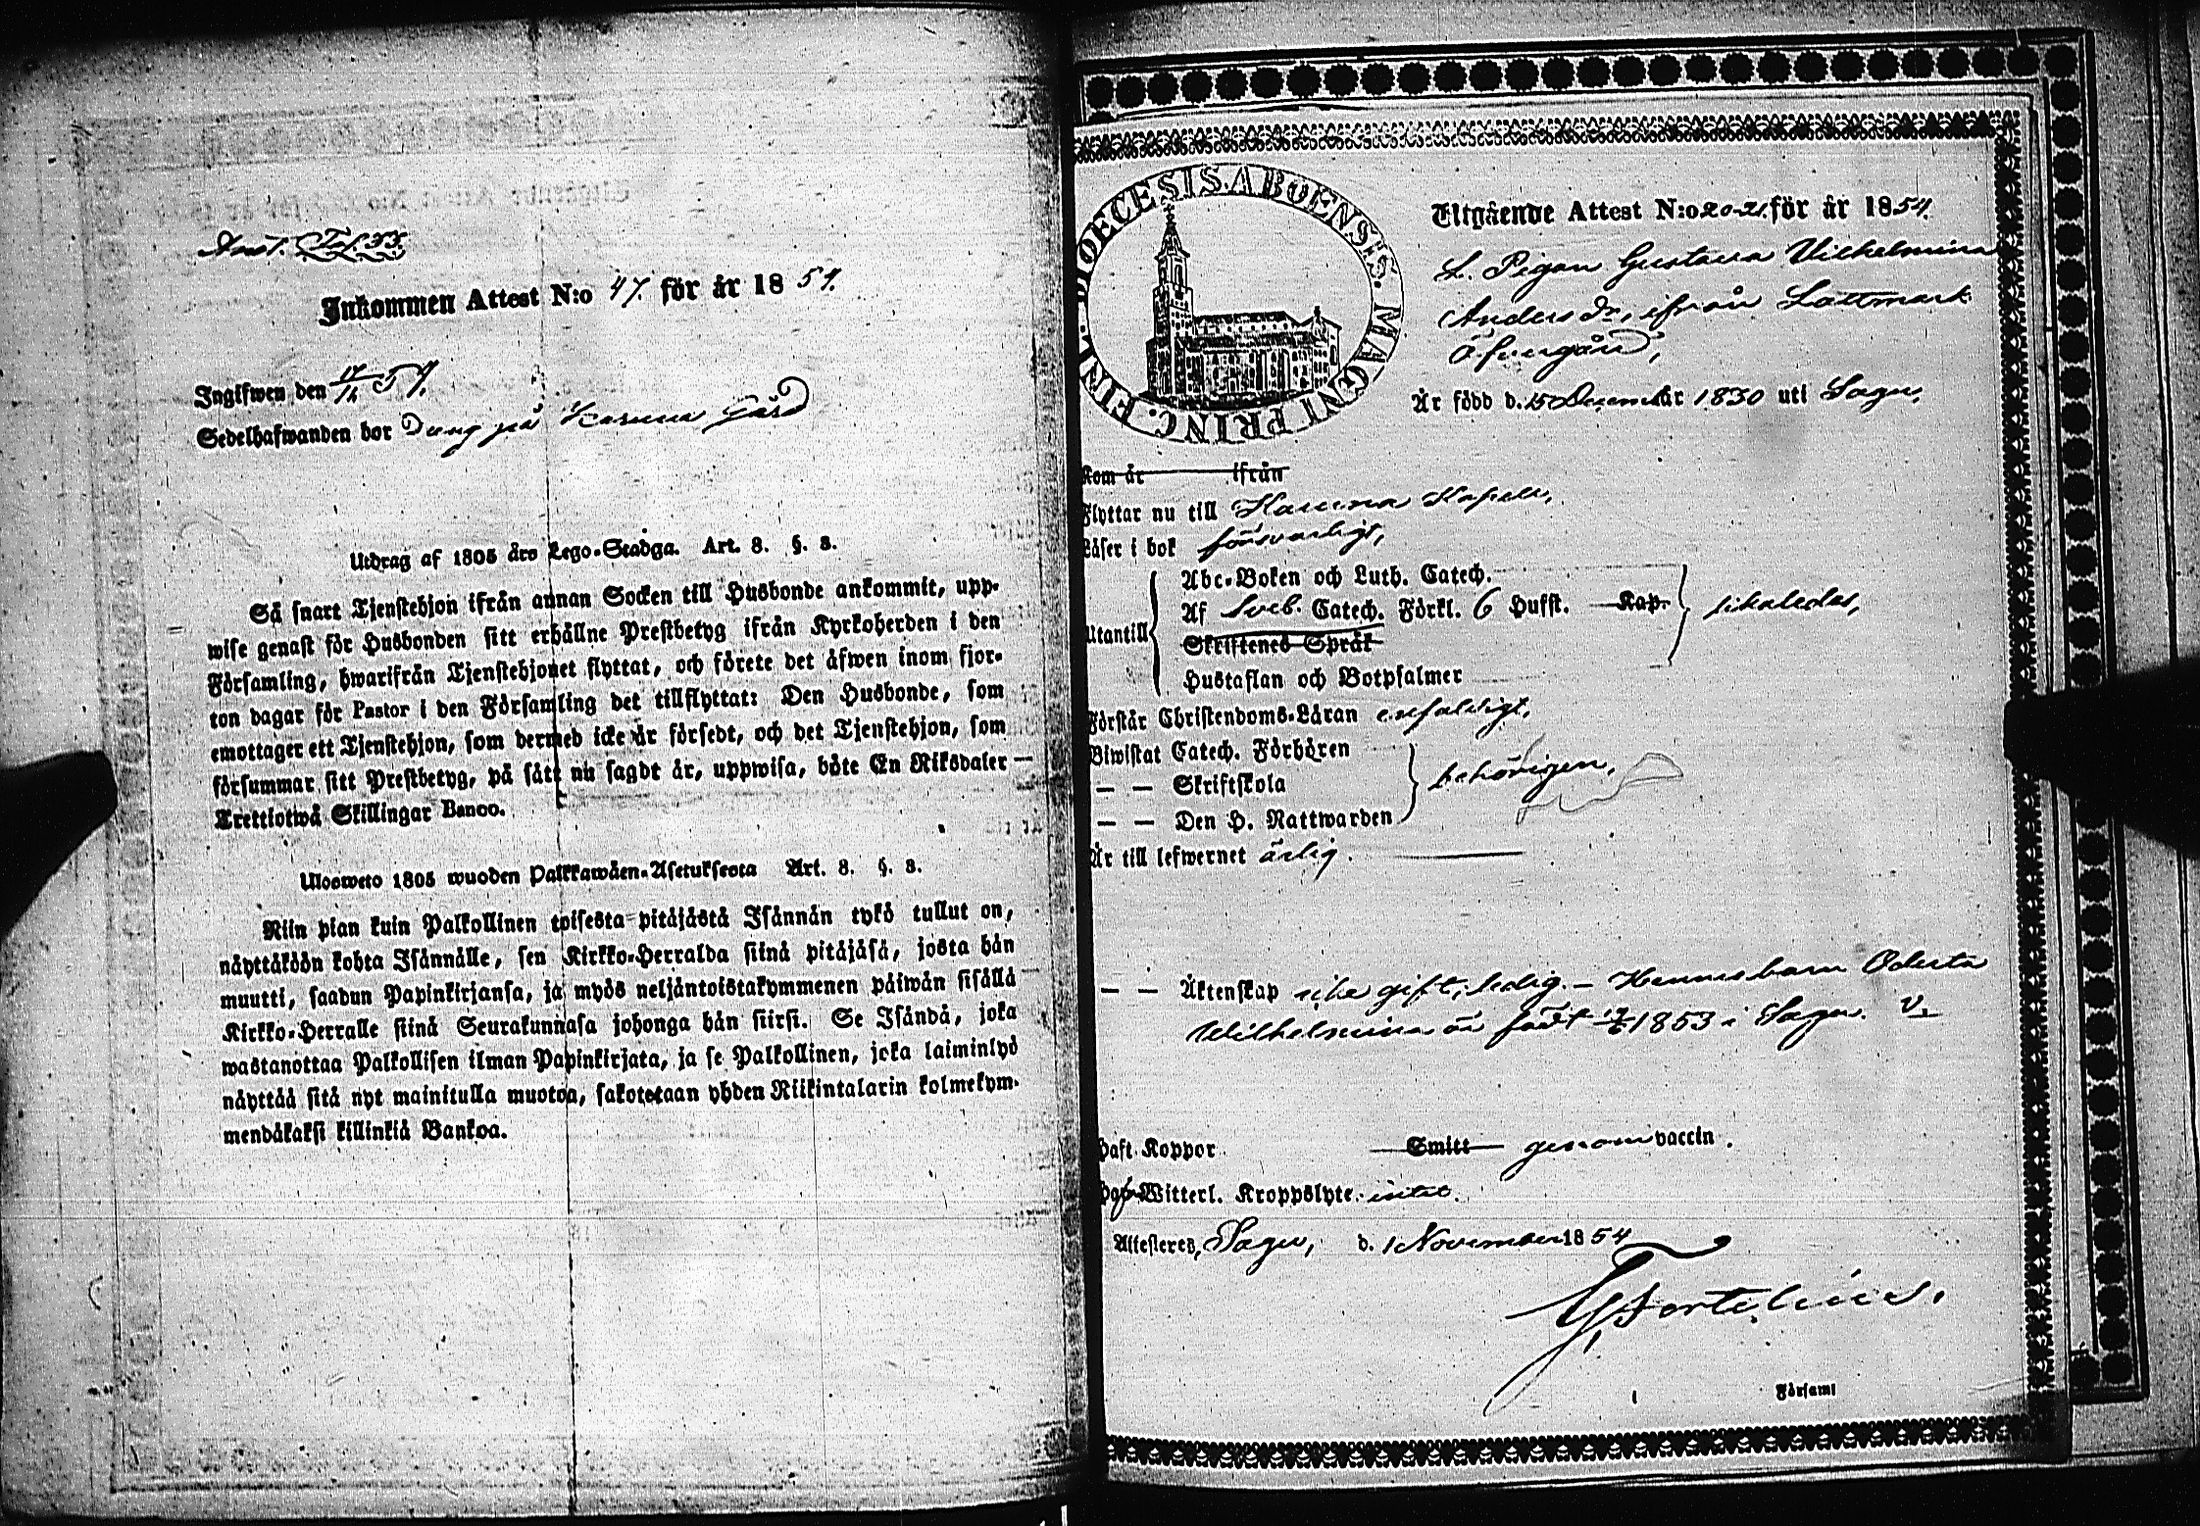 Ant. Fol. 33.
Inkommen Attest N:o 47. för år 1854.
Ingifwen den 17/12 54.
Sedelhafwanden bor Dräng på Karuna Gård
Utdrag af 1805 års Lego-Stadga. Art. 8. §. 8.
Så snart Tjenstehjon ifrån annan Socken till Husbonde ankommit, upp-
wise genast för Husbonden sitt erhållne Prestbetyg ifrån Kyrkoherden i den
Församling, hwarifrån Tjenstehjonet flyttat, och förete det äfwen inom fjor-
ton dagar för Pastor i den Församling det tillflyttat: Den Husbonde, som
emottager ett Tjenstehjon, som dermed icke är försedt, och det Tjenstehjon, som
försummar sitt Prestbetyg, på sätt nu sagdt är, uppwisa, böte En Riksdaler
Trettiotwå Skillingar Banco.
Ulosweto 1805 wuoden Palkkawäen-Asetuksesta Art. 8. §. 8.
Niin pian kuin Palkollinen toisesta pitäjästä Isännän tykö tullut on,
näyttäköön kohta Isännälle, sen Kirkko-Herralda siinä pitäjäsä, josta hän
muutti, saadun Papinkirjansa, ja myös neljäntoistakymmenen päiwän sisällä
Kirkko-Herralle siinä Seurakunnasa johonga hän siirsi. Se Isändä, joka
wastanottaa Palkollisen ilman Papinkirjata, ja se Palkollinen, joka laiminlyö
näyttää sitä nyt mainitulla muotoa, sakotetaan yhden Riikintalarin kolmekym-
mendäkaksi killinkiä Bankoa.
DIOECESIS ABOENSIS. MAGNI PRINC. FINL.
Utgående Attest N:o 20-21. för år 1854.
L. Pigan Gustava Vilhelmina
Anders dr, ifrån Lättmark
Öfvergård,
Är född d. 15 December år 1830 uti Sagu.
Kom år ifrån
Flyttar nu till Karuna Kapell,
Läser i bok försvarligt,
Abc-Boken och Luth. Catech.
Utantill Af Sveb. Catech. Förkl. 6 Hufst. Kap. likaledes,
Skriftenes Språk
Hustaflan och Botpsalmer
Förstår Christendoms-Läran enfaldigt,
Biwistat Catech. Förhören
— — Skriftskola behörigen,
— — Den H. Nattwarden
Är till lefwernet ärlig.
— — Äktenskap icke gift, ledig. – Hennes barn
Wilhelmina är född 1853 i Sagu.
Haft Koppor Smitt genom vaccin.
Hafw. Witterl. Kroppslyte intet.
Attesteres, Sagu, d. 1 November 1854
G. Forteliius.
Församl